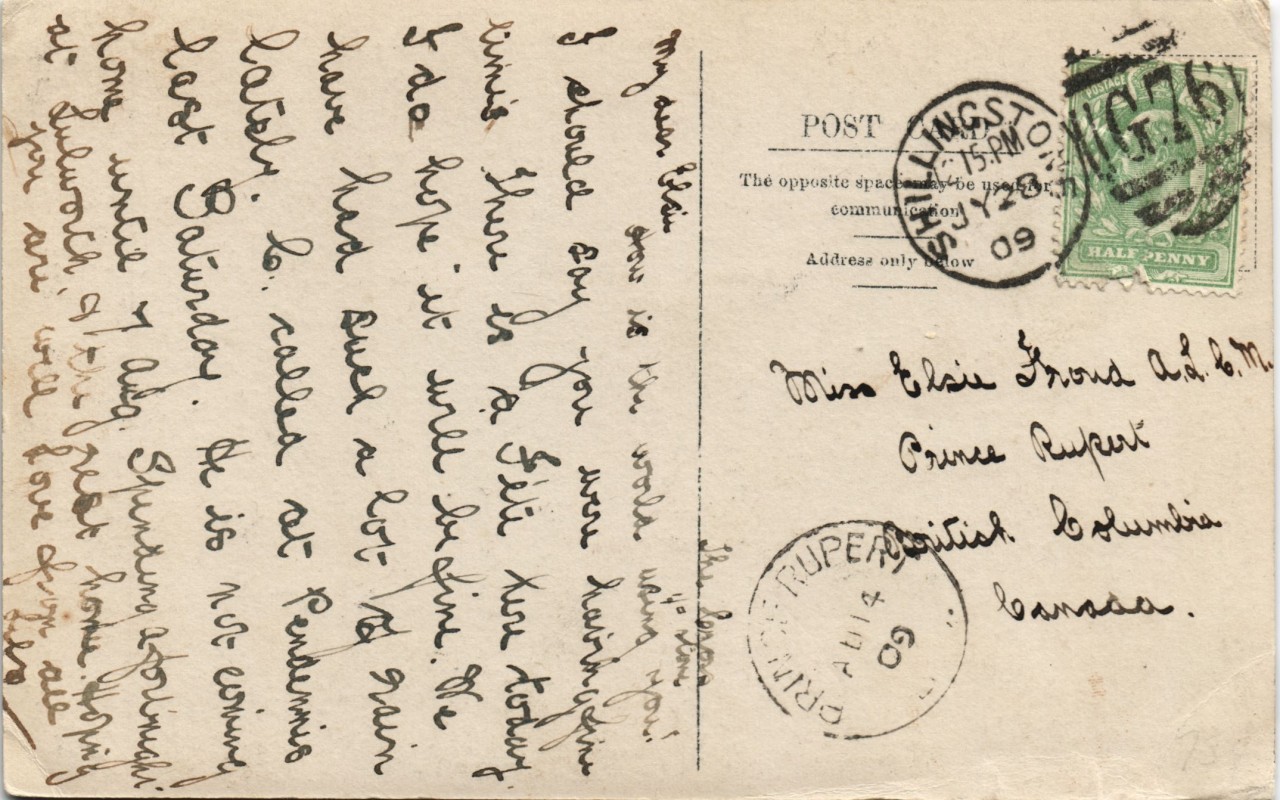 My dear Elsie
How is the world using you?
I should say you were having fine
times. There is a Fête here today.
I do hope it will be fine. We
have had such a lot of rain
lately. C. called at Pendennis
last Saturday. He is not coming
home until 7 Aug. Spending a fortnight
at Lulworth & the rest home. Hoping
you are well love from all
POST CARD
The opposite space may be used for
communication
Address only below
SHILLINGSTONE
15.PM
JY 28
09
G76
POSTAGE
HALFPENNY
Miss Elsie Froud A.L.C.M.
Prince Rupert
British Columbia
Canada.
PRINCE RUPERT
AU 14
09